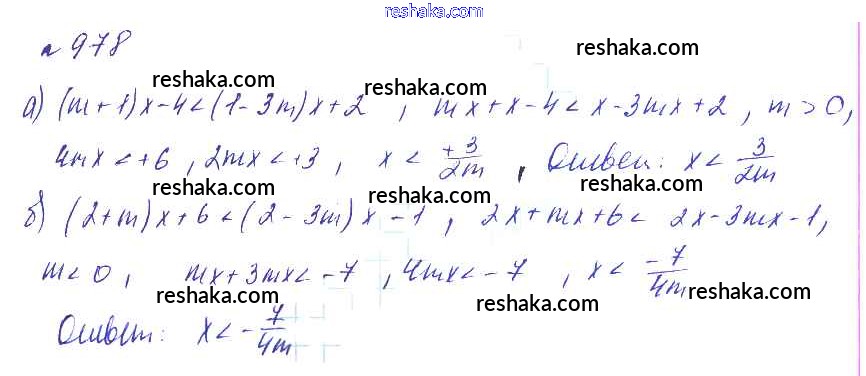 reshaka.com
№ 978
reshaka.com reshaka.com
а) (m+1)x-4<(1-3m)x+2, mx+x-4<x-3mx+2, m>0,
4mx<+6, 2mx<+3, x< +3/2m, Ответ: x< 3/2m
reshaka.com reshaka.com
б) (2+m)x+6<(2-3m)x-1, 2x+mx+6< 2x-3mx-1,
m<0, mx+3mx<-7, 4mx<-7, x< -7/4m
reshaka.com reshaka.com reshaka.com
Ответ: x<- 7/4m
reshaka.com
reshaka.com